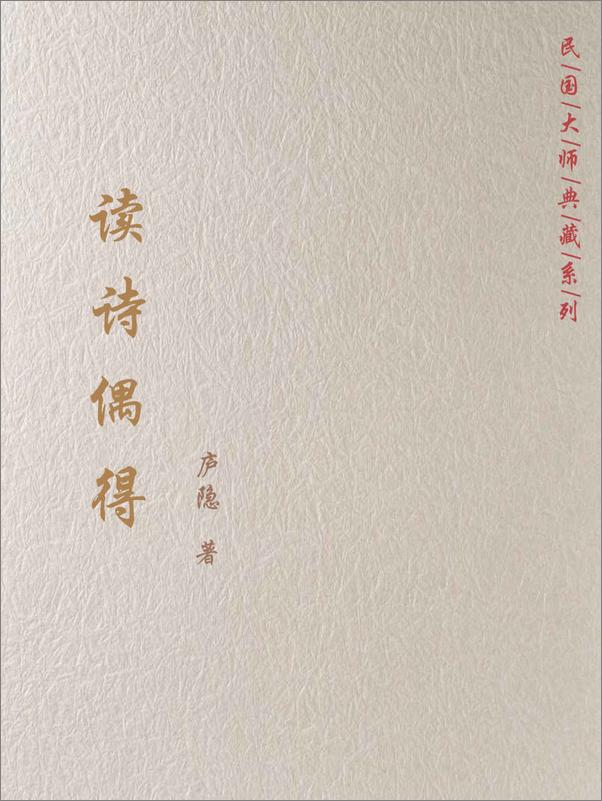 民|国|大|师|典|藏|系|列
读诗偶得
庐隐 著